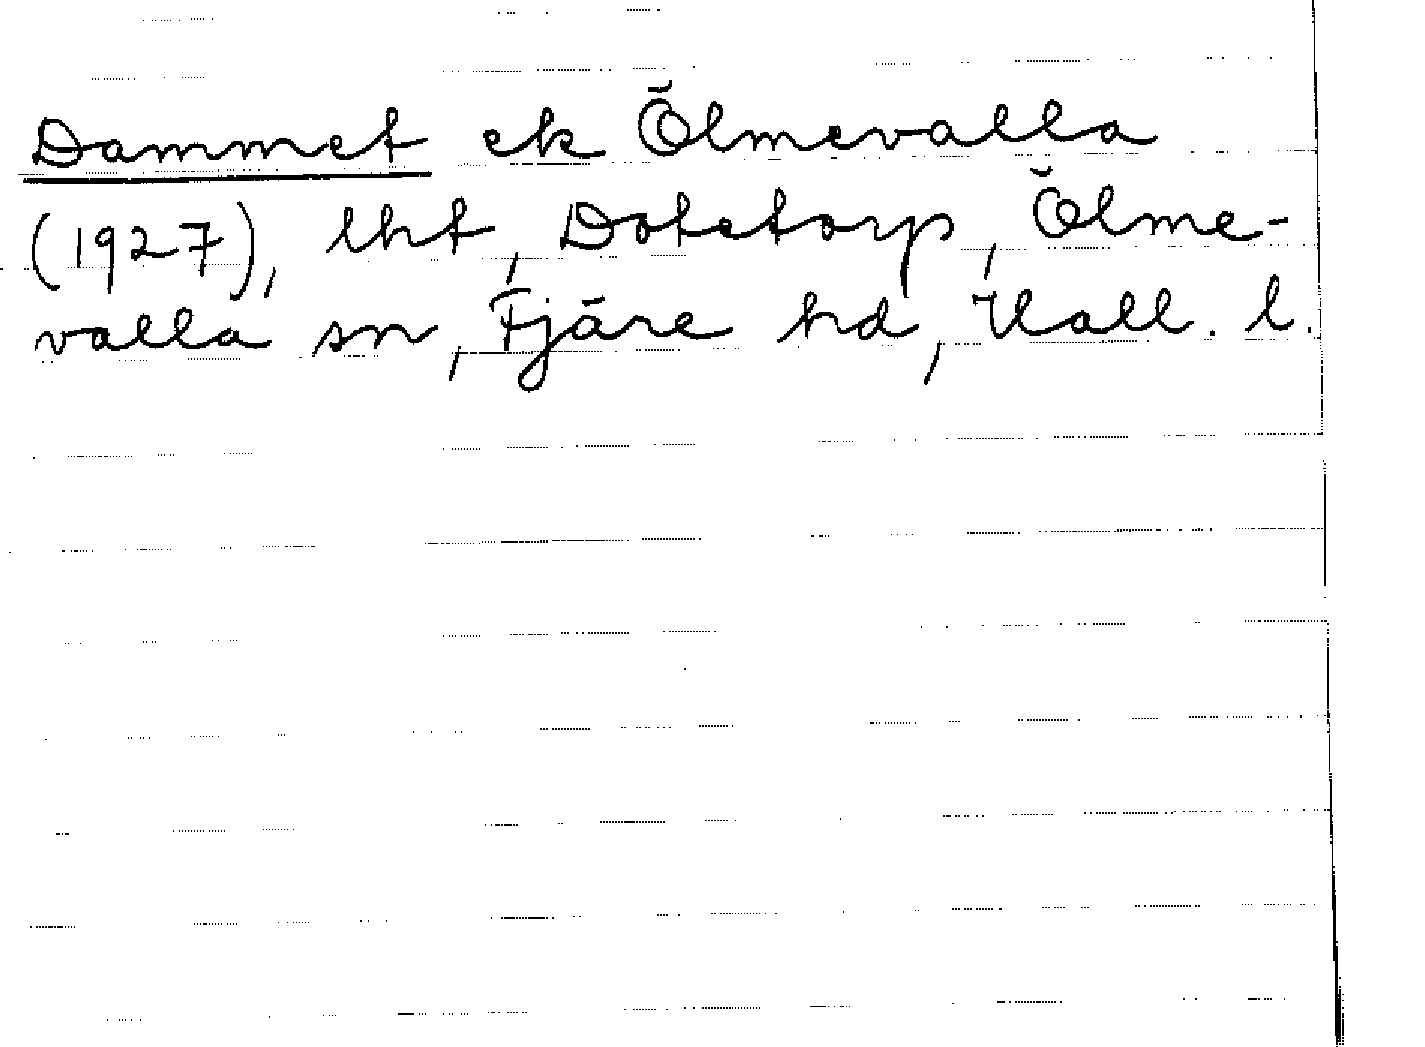 Dammet ek Ölmevalla
(1927), lht, Dotetorp, Ölme-
valla sn, Fjäre hd, Hall. l.